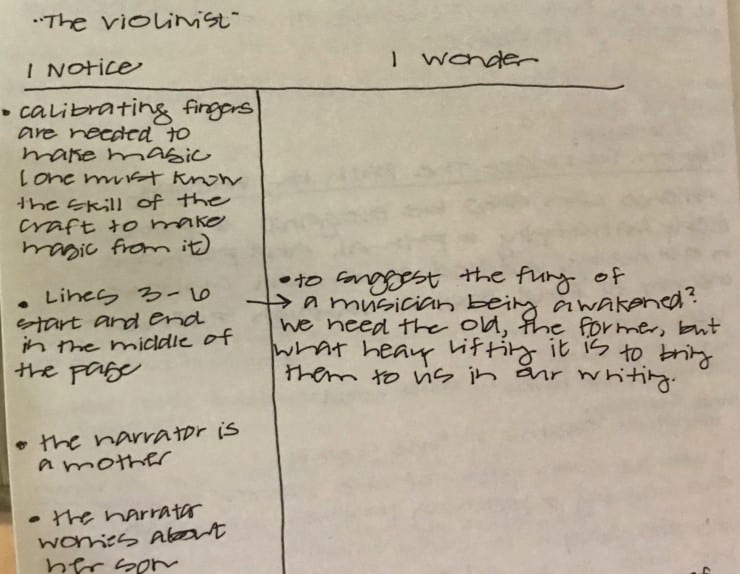 "The violinist"
I Notice
I wonder
• calibrating fingers
are needed to
make magic
(one must know
the skill of the
craft to make
magic from it)
• Lines 3-6
start and end
in the middle of
the page
→ • to suggest the fury of
a musician being awakened?
we need the old, the former, but
what heavy lifting it is to bring
them to us in our writing.
• the narrator is
a mother
• the narrator
worries about
her son